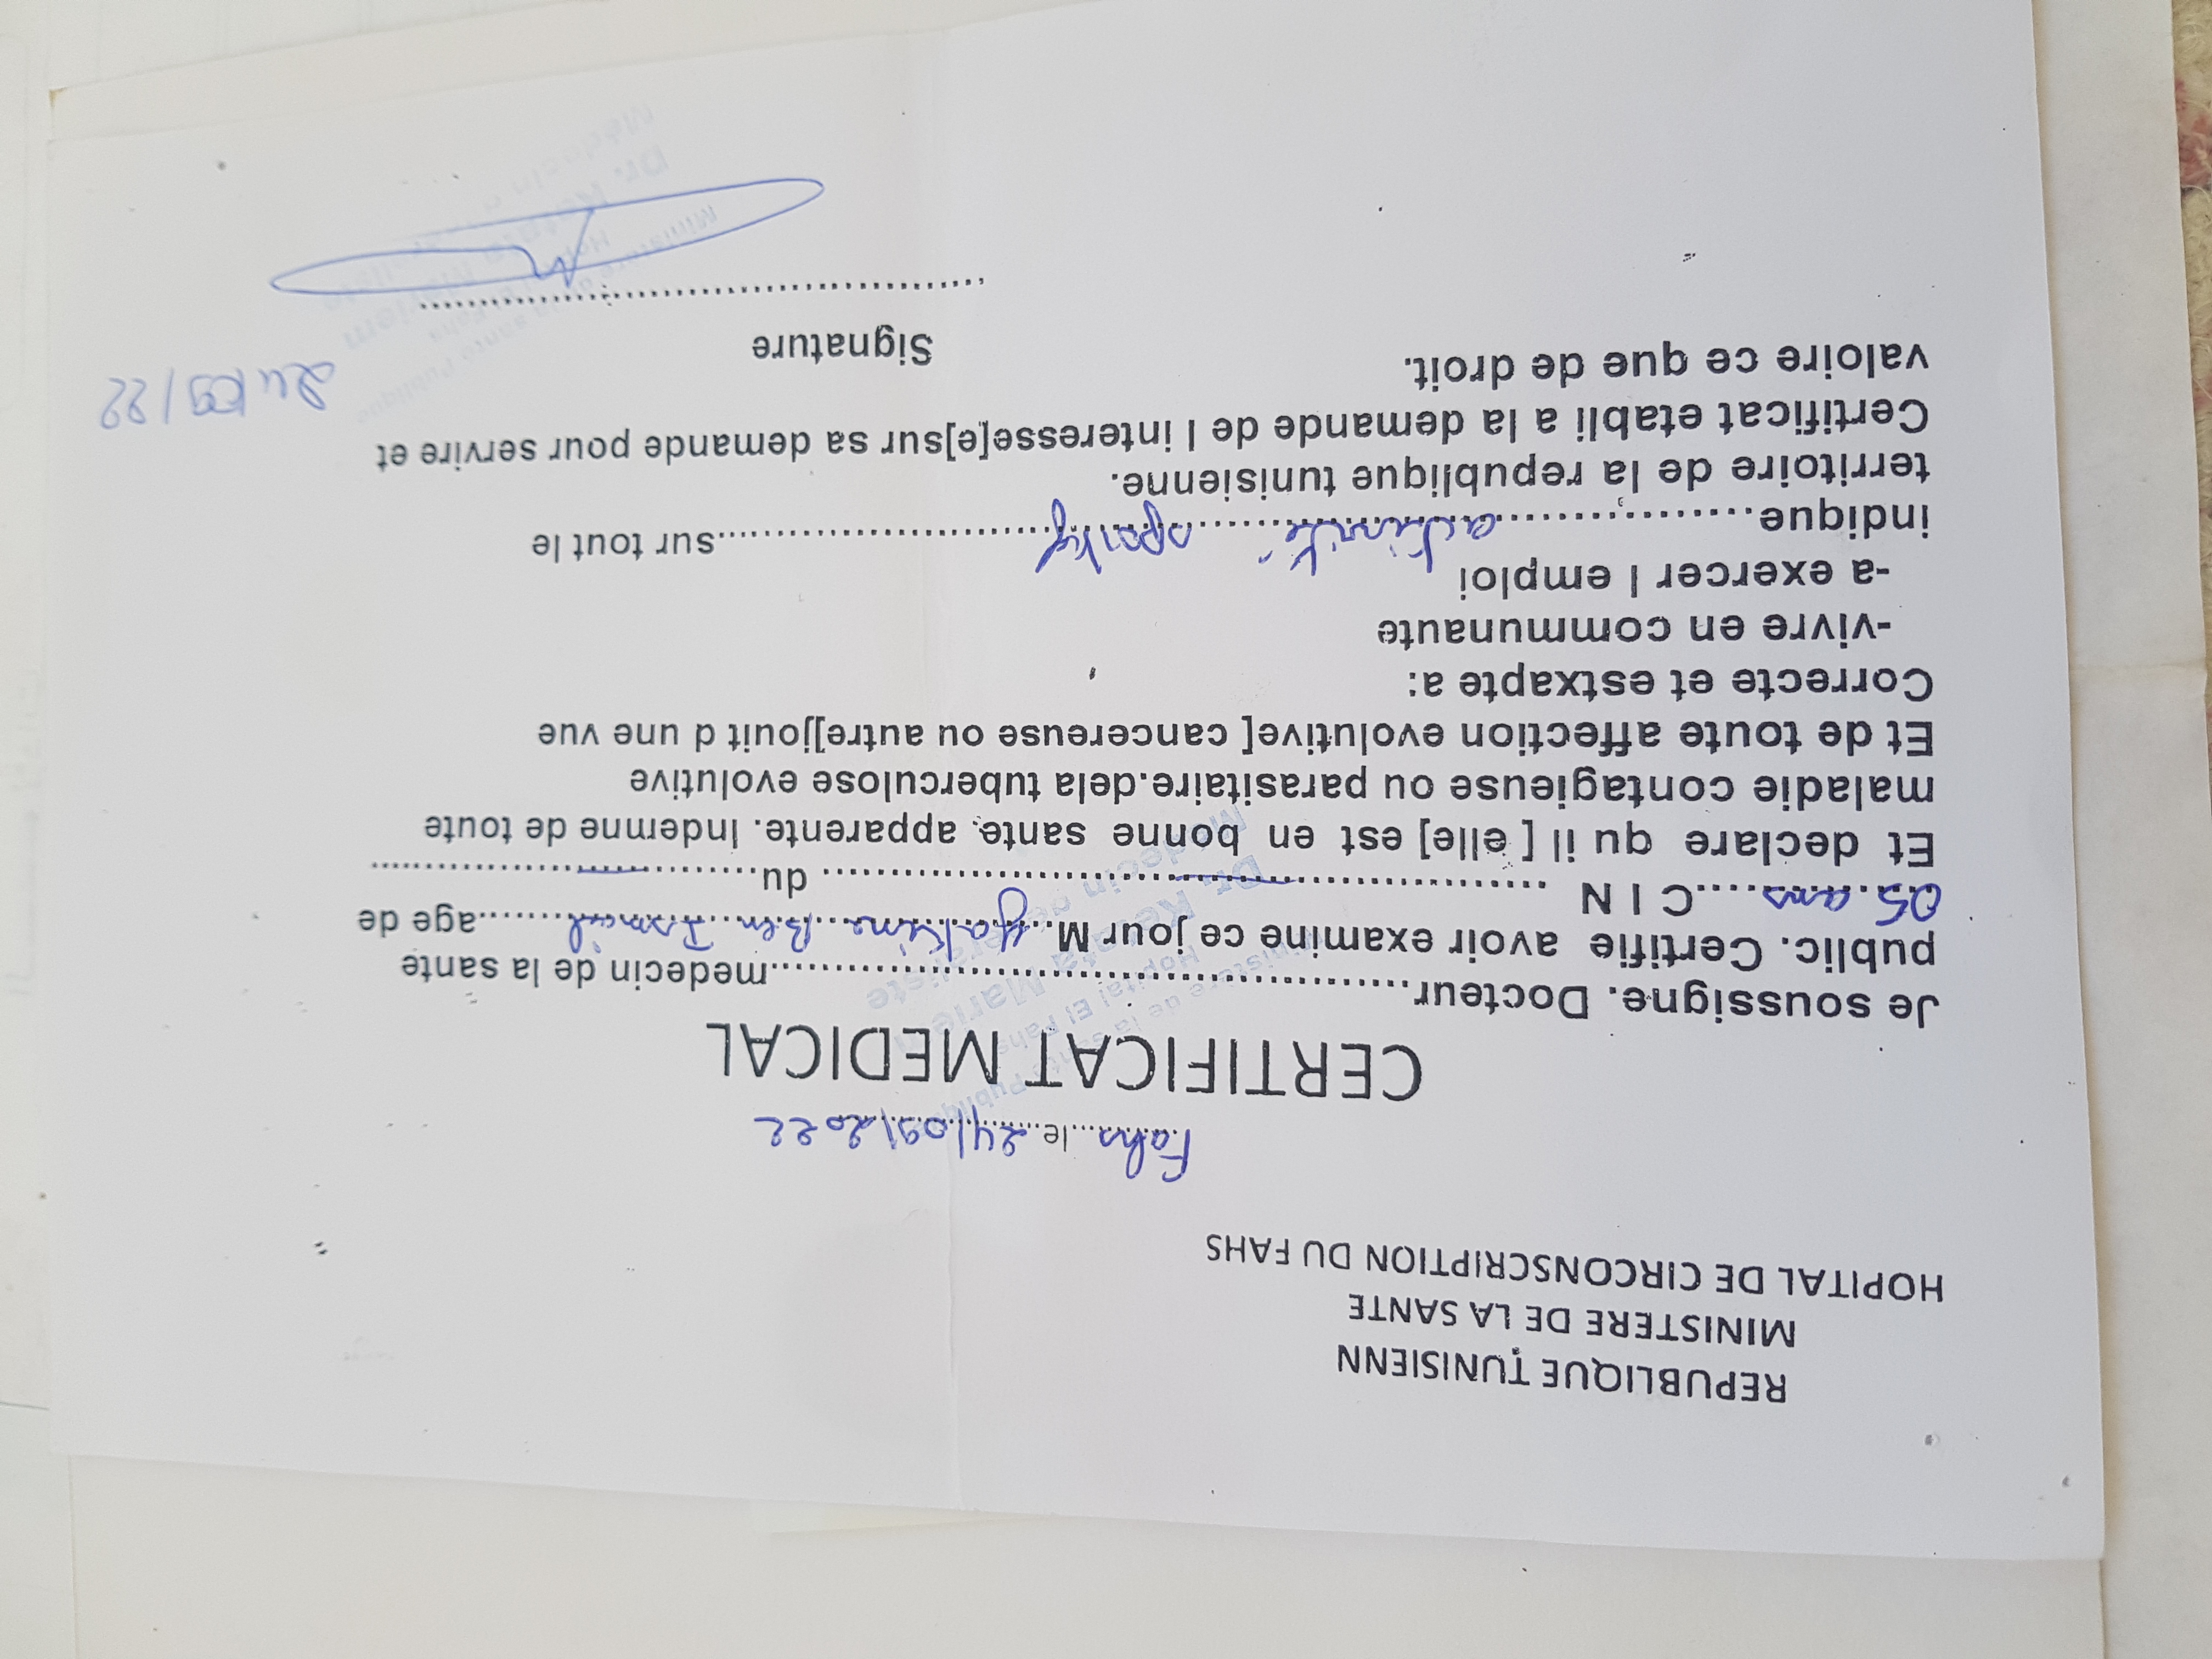 REPUBLIQUE TUNISIENN
MINISTERE DE LA SANTE
HOPITAL DE CIRCONSCRIPTION DU FAHS
Fahs le 24/09/2022
CERTIFICAT MEDICAL
Je soussigne. Docteur..........medecin de la sante
public. Certifie avoir examine ce jour M... Yakine Ben Ismail.......age de
05 ans....C I N .......... du..........
Et declare qu il [ elle] est en bonne sante. apparente. Indemne de toute
maladie contagieuse ou parasitaire.dela tuberculose evolutive
Et de toute affection evolutive[ cancereuse ou autre]jouit d une vue
Correcte et estxapte a:
-vivre en communaute
-a exercer l emploi
indique.......... activité ..........sur tout le
territoire de la republique tunisienne.
Certificat etabli a la demande de l interesse[e]sur sa demande pour servire et
valoire ce que de droit.
Signature
24/09/22
Ministère de la Santé Publique
Hopital El Fahs
Dr.
Médecin généraliste